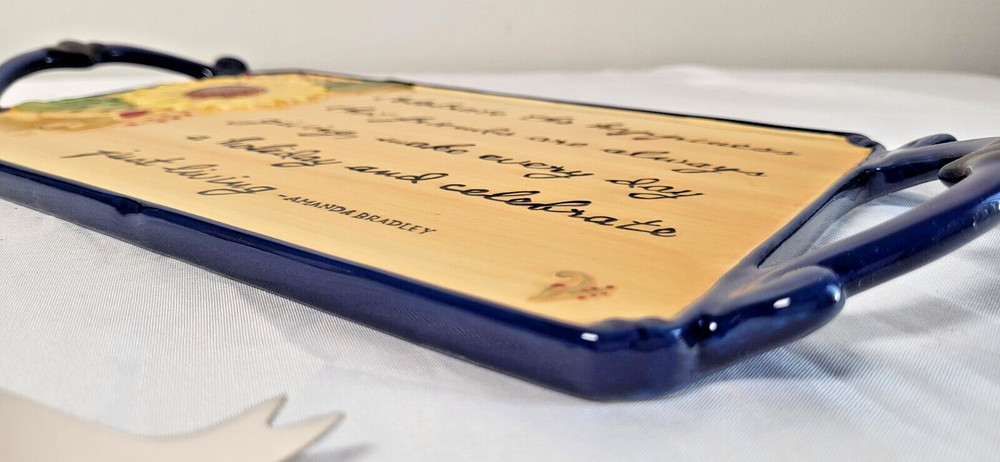 the happiness
their friends are always
giving make every day
a holiday and celebrate
just living -AMANDA BRADLEY